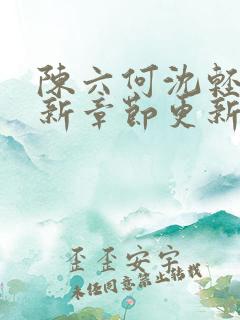 陳六何沈輕
新章節更新
歪歪安宁
未经同意禁止转载